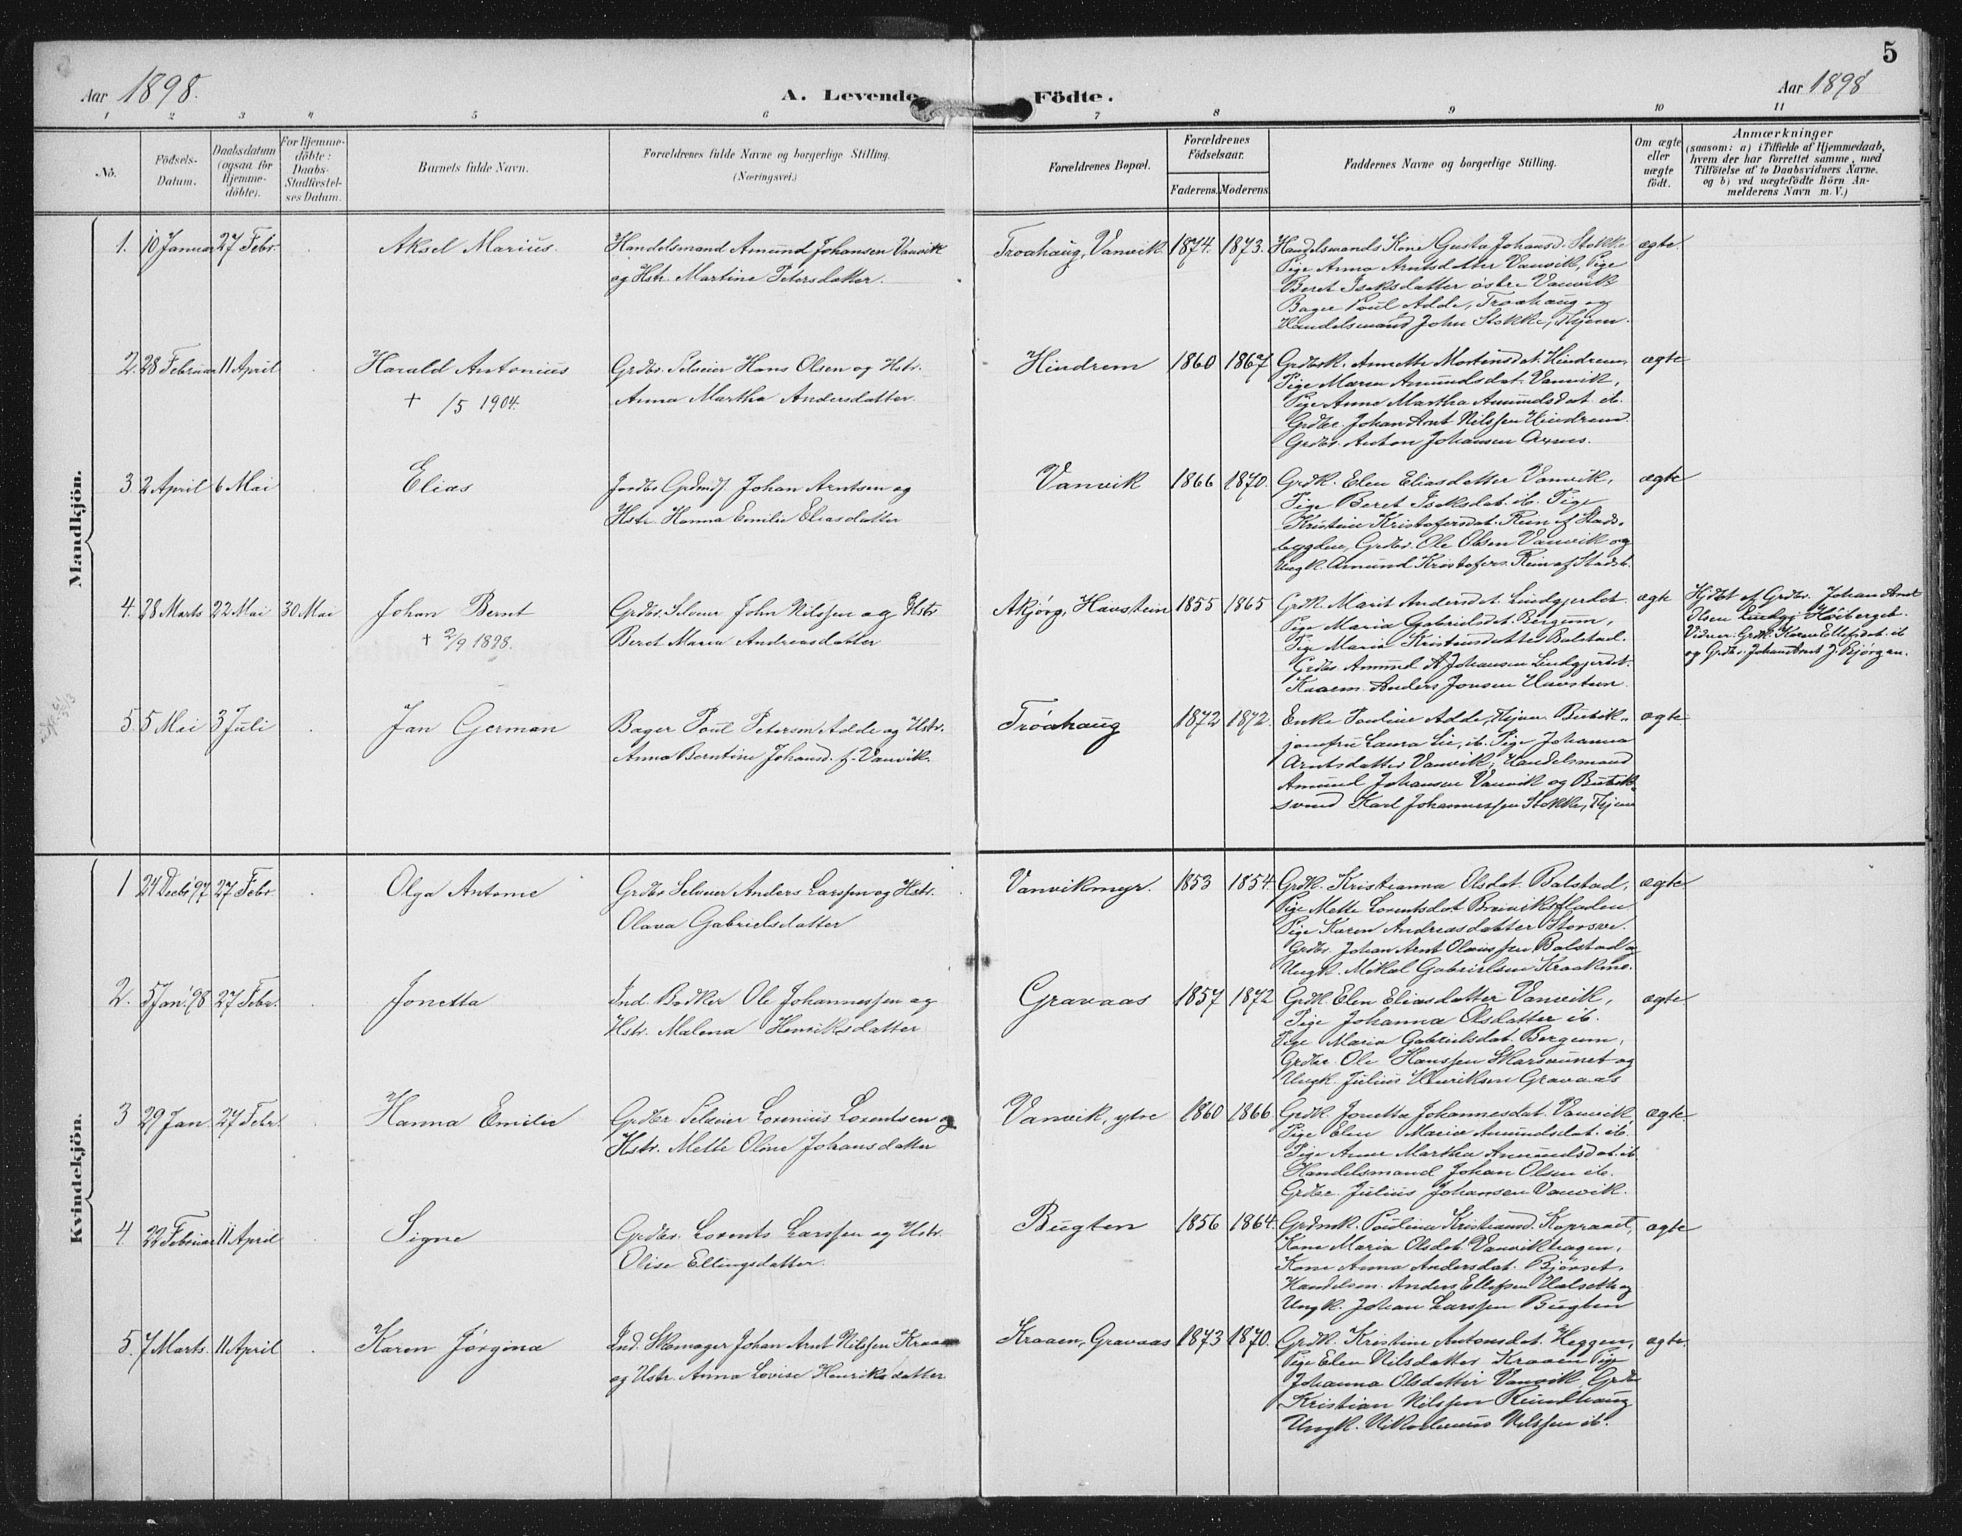 5
Aar 1898.
A. Levende Födte.
Aar 1898
1 2 3 4 5 6 7 8 9 10 11
No.
Födsels-
Datum.
Daabsdatum
(ogsaa for
Hjemme-
döbte).
For Hjemme-
döbte:
Daabs-
Stadfæstel-
ses Datum.
Barnets fulde Navn.
Forældrenes fulde Navne og borgerlige Stilling.
(Næringsvei.)
Forældrenes Bopæl.
Forældrenes
Födselsaar.
Faderens. Moderens.
Faddernes Navne og borgerlige Stilling.
Om ægte
eller
uægte
födt.
Anmærkninger
(saasom: a) i Tilfælde af Hjemmedaab,
hvem der har forrettet samme, med
Tilföielse af to Daabsvidners Navne,
og b) ved uægtefödte Börn An-
melderens Navn m. V.)
Mandkjön.
1. 10 Januar 27 Febr. Aksel Marius. Handelsmand Amund Johansen Vanvik
og Hstr. Martine Petersdatter.
Troahaug, Vanvik 1874. 1873. Handelsmands Kone Gusta Johansd. Stokke ægte
Pige Anna Arntsdatter Vanvik, Pige
Beret Iseksdatter østre Vanvik
Bager Poul Adde, Troahaug og
Handelsmand John Stokke, Thjem.
2. 28 Februar 11 April Harald Antonius Grdbr. Selveier Hans Olsen og Hstr.
+ /5 1904. Anna Martha Andersdatter.
Hindrem 1860 1867 Grdbrk. Annette Mortensdat. Hindrem, ægte
Pige Maren Amundsdat. Vanvik,
Pige Anne Martha Amundsdat. ib.
Grdbr. Johan Arnt Nilssen Hindrem
Grdbr. Anton Johansen Axnes.
3 2 April 6 Mai Elias Johan Arntsen og
Hstr. Hanna Emilie Eliasdatter
Vanvik 1866 1870. Grdk. Elen Eliasdatter Vanvik, ægte
Pige Beret Iseksdat. ib. Pige
Kristine Kristofersdat. Rein af Stads-
bygden, Grdbr. Ole Olsen Vanvik og
Ungk. Amund Kristofers. Rein af Stadsb.
4. 28 Marts 22 Mai 30 Mai Johan Bernt Grdbr. Selveier John Nilssen og Hstr.
+ 2/9 1898. Beret Maria Andreasdatter
Akjørg, Havstein 1855 1865 Grdk. Marit Andersdat. Lindgjerdet. ægte Hjdøbt af Grdbr. Johan Arnt
Pige Maria Gabrielsdat. Bergum, Olsen Høiberget.
Pige Maria Kristensdatter Balstad. Vidner: Grdk. Karen Ellefsdat. ib
Grdbr. Amund A Johansen Lindgjerdet. og Grdbr. Johan Arnt J. Bjørgan.
Kaarm. Anders Jonsen Havstein.
5. 5 Mai 3 Juli Jan German Bager Poul Petersen Adde og Hstr.
Anna Berntine Johansd. f. Vanvik.
Tróahaug 1872 1872. Enke Pauline Adde, Thjem. Butik- ægte
jomfru Laura Lie, ib. Pige Johanna
Arntsdatter Vanvik, Handelsmand
Amund Johansen Vanvik og Butik-
svend Karl Johannessen Stokke, Thjem
Kvindekjön.
1 24 Decbr 97 27 Febr. Olga Antonie Grdbr Selveier Anders Larssen og Hstr.
Olava Gabrielsdatter
Vanvikmyr. 1853 1854. Grdk. Kristianna Olsdat. Balstad, ægte
Pige Mette Lorentsdat. Breivikfladen
Pige Karen Andreasdatter Storsve.
Grdbr. Johan Arnt Olaussen Balstad og
Ungk. Mikal Gabrielsen Kraakmo.
2. 5 Jan. 98 27 Febr. Jonetta Ind. Bødker Ole Johannessen og
Hstr. Malena Henriksdatter
Gravaas 1857 1872 Grdk. Elen Eliasdatter Vanvik, ægte
Pige Johanna Olsdatter ib.
Pige Maria Gabrielsdat. Bergum,
Grdbr. Ole Hanssen Skarsvunet og
Ungk. Julius Henriksen Gravaas
3 29 Jan. 27 Febr. Hanna Emilie Grdbr Selveier Lorenius Lorentsen og
Hstr. Mette Oline Johansdatter
Vanvik, ytre 1860 1866 Grdk. Jonetta Johannesdat. Vanvik, ægte.
Pige Elen Maria Amundsdat. ib.
Pige Anne Martha Amundsdat. ib
Handelsmand Johan Olsen ib.
Grdbr. Julius Johansen Vanvik.
4. 22 Februar 11 April Signe Grdbr. Lorents Larssen og Hstr.
Olise Ellingsdatter.
Bugten 1856 1864. Grdmk. Paulina Kristiansd. Kopraaet, ægte
Kone Maria Olsdat. Vanvikhagen,
Kone Anna Andersdat. Bjørset,
Handelsm. Anders Ellefsen Halseth og
Ungk. Johan Larssen Bugten
5. 7 Marts. 11 April Karen Jørgina Ind. Skomager Johan Arnt Nilssen Kraaen
og Hstr. Anna Lovise Henriksdatter
Kraaen, Gravaas 1873 1870. Grdk. Kristine Antonsdat. Heggen, ægte.
Pige Elen Nilsdatter Kraaen Pige
Johanna Olsdatter Vanvik Grdbr
Kristian Nilssen Rundhaug
Ungk. Nikolaus Nilssen ib.